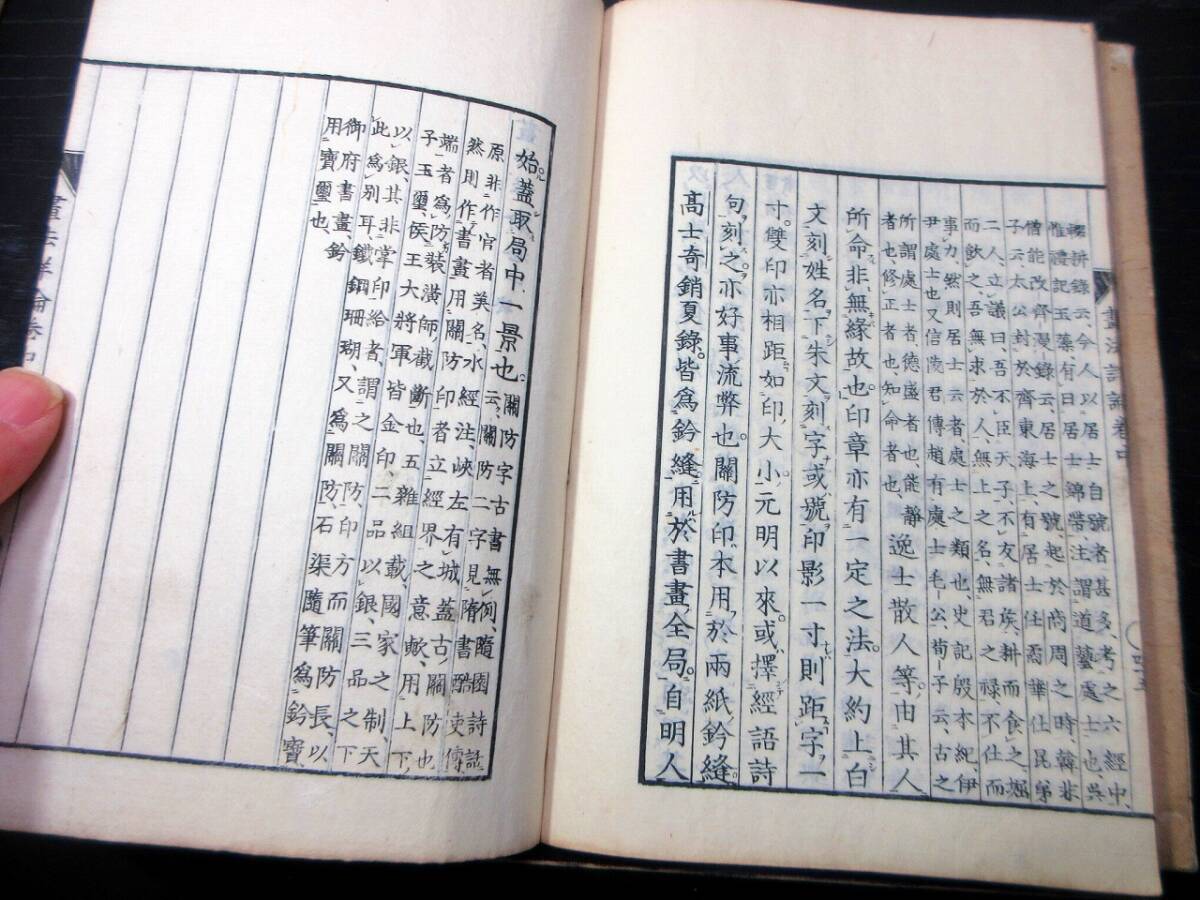 畫法詳論卷中
輟耕錄云、今人以居士自號者甚多、考之六經中、
惟禮記玉藻有曰居士錦帶、注謂道藝處士也、吳
僧能改齊漫錄云、居士之號、起於商周之時、韓非
子云、太公封於齊東海上、有居士任矞華仕昆弟
二人、立議曰、吾不臣天子、不友諸侯、耕而食之、掘
而飲之、吾無求於人、無上之名、無君之祿、不仕而
事力、然則居士云者、處士之類也、史記殷本紀、伊
尹處士也、又信陵君傳、趙有處士毛公、荀子云、古之
所謂處士者、德盛者也、能靜
者也、修正者也、知命者也、
逸士散人等。由其人
所命、非無緣故也。印章亦有一定之法。大約上白
文刻姓名、下朱文刻字或號、印影一寸則距字一
寸。雙印亦相距如印大小。元明以來。或擇經語詩
句刻之。亦好事流弊也。關防印、本用於兩紙鈐縫。
高士奇銷夏錄。皆爲鈐縫用於書畫全局。自明人
始蓋取局中一景也。
關防字古書無例、隨園詩話
云、關防二字見隋書酷吏傳、
原非作官者美名、水經注、峽左有城蓋古關防也、
然則作書畫用關防印者、立經界之意歟、用上下
端者、爲防裝潢師截斷也、五雜組載、國家之制、天
子玉璽、侯王大將軍皆金印、二品以銀、三品之下
以銀、其非掌印給者、謂之關防、印方而關防長、以
此爲別耳、鐵鋼珊瑚、又爲關防、石渠隨筆爲鈐寶
御府書畫、鈐
用寶璽也、
畫法詳論卷中